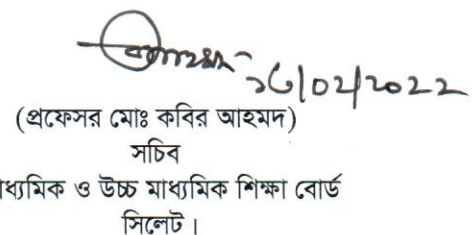 16/02/2022
(প্রফেসর মোঃ কবির আহমদ)
সচিব
ধ্যমিক ও উচ্চ মাধ্যমিক শিক্ষা বোর্ড
সিলেট।